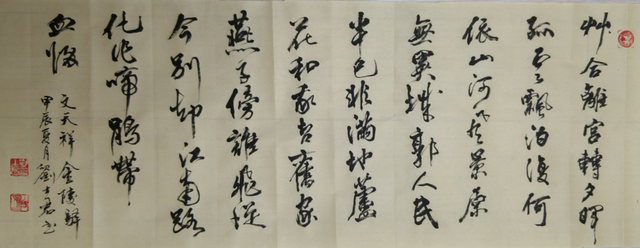 艸合離宮轉夕暉
孤云飄泊復何
依山河風景原
無異城郭人民
半已非滿地蘆
花和我老舊家
燕子傍誰飛從
今別却江南路
化作啼鵑帶
血歸
文天祥 金陵驛
甲辰夏月劉士君书